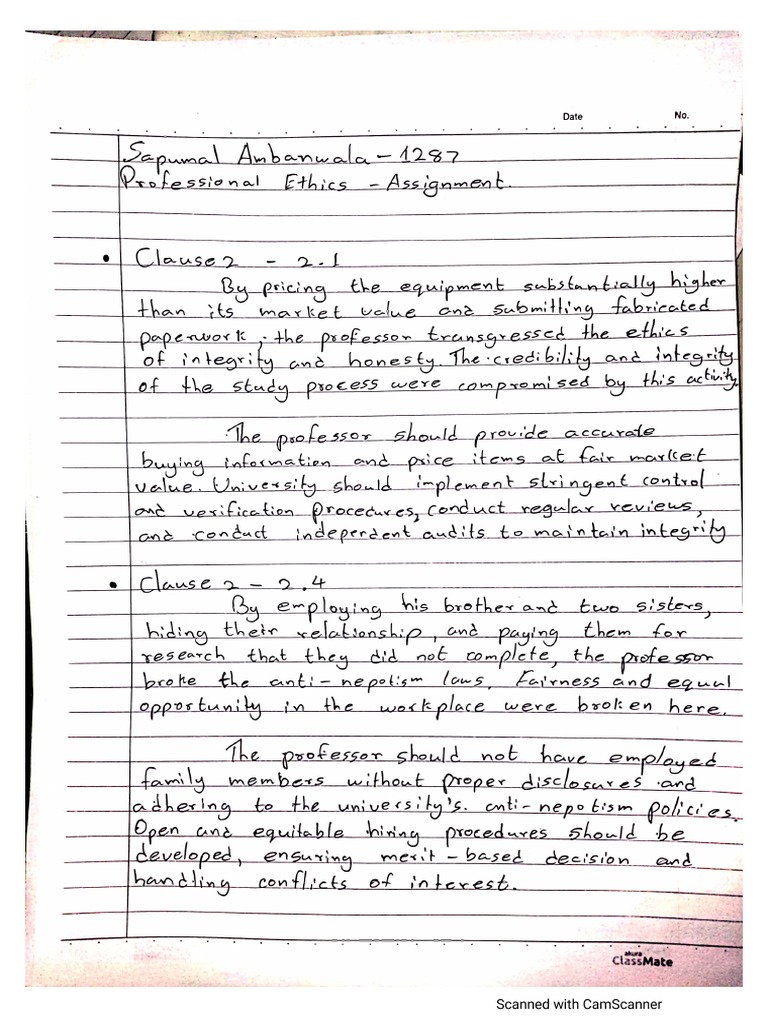 Date No.
Sapumal Ambanwala - 1287
Professional Ethics - Assignment.
• Clause 2 - 2.1
By pricing the equipment substantially higher
than its market value and submitting fabricated
paperwork, the professor transgressed the ethics
of integrity and honesty. The credibility and integrity
of the study process were compromised by this activity.
The professor should provide accurate
buying information and price items at fair market
value. University should implement stringent control
and verification procedures, conduct regular reviews,
and conduct independent audits to maintain integrity
• Clause 2 - 2.4
By employing his brother and two sisters,
hiding their relationship, and paying them for
research that they did not complete, the professor
broke the anti-nepotism laws. Fairness and equal
opportunity in the workplace were broken here.
The professor should not have employed
family members without proper disclosures and
adhering to the university's anti-nepotism policies.
Open and equitable hiring procedures should be
developed, ensuring merit-based decision and
handling conflicts of interest.
akura
ClassMate
Scanned with CamScanner